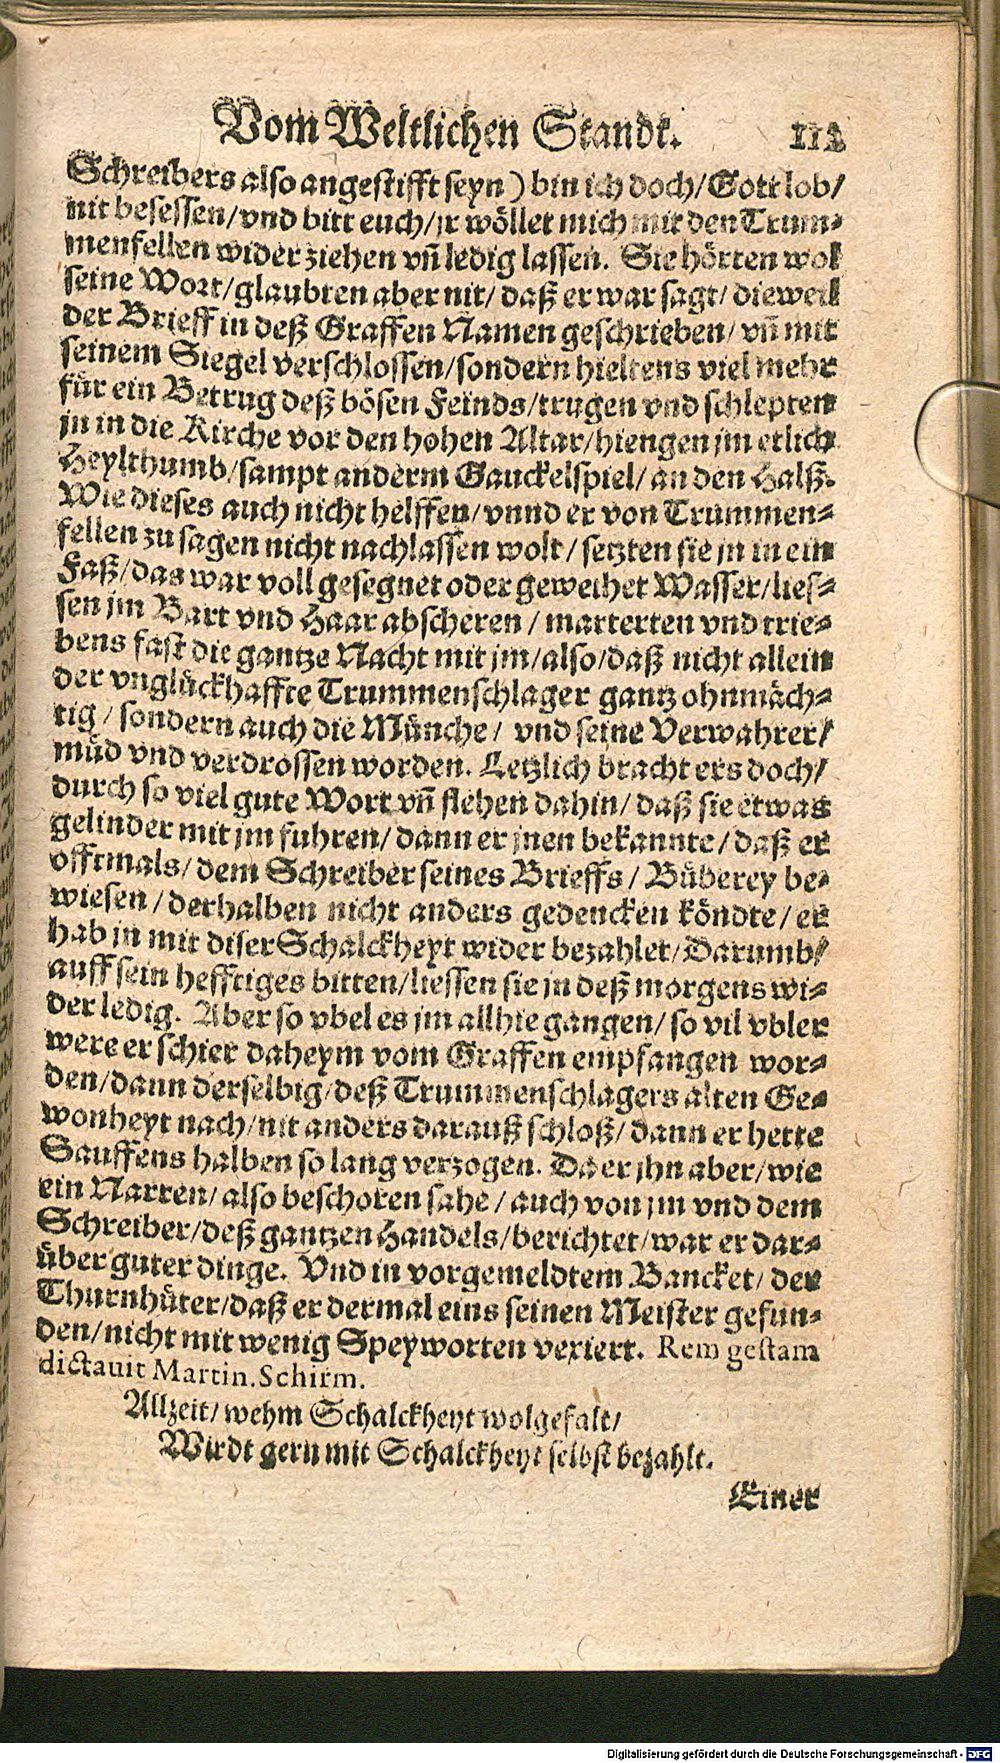 Vom Weltlichen Standt. 112
Schreibers also angestifft seyn) bin ich doch/Gott lob/
nit besessen/vnd bitt euch/jr wöllet mich mit den Trum-
menfellen wider ziehen vñ ledig lassen. Sie hörten wol
seine Wort/glaubten aber nit/ daß er war sagt/ dieweil
der Brieff in deß Graffen Namen geschrieben/ vñ mit
seinem Siegel verschlossen/sondern hieltens viel mehr
für ein Betrug deß bösen Feinds/trugen vnd schlepten
jn in die Kirche vor den hohen Altar/hiengen jm etlich
Heylthumb/sampt anderm Gauckelspiel/ an den Halß.
Wie dieses auch nicht helffen/vnnd er von Trummen-
fellen zu sagen nicht nachlassen wolt/ setzten sie jn in ein
Faß/das war voll gesegnet oder geweihet Wasser/lies-
sen jm Bart vnd Haar abscheren/ marterten vnd trie-
bens fast die gantze Nacht mit jm/also/daß nicht allein
der vnglückhaffte Trummenschlager gantz ohnmäch-
tig/ sondern auch die Münche/ vnd seine Verwahrer/
müd vnd verdrossen worden. Letzlich bracht ers doch/
durch so viel gute Wort vñ flehen dahin/ daß sie etwas
gelinder mit jm fuhren/ dann er jnen bekannte/ daß er
offtmals/ dem Schreiber seines Brieffs/ Büberey be-
wiesen/ derhalben nicht anders gedencken köndte/ er
hab jn mit diser Schalckheyt wider bezahlet/Darumb/
auff sein hefftiges bitten/liessen sie jn deß morgens wi-
der ledig. Aber so vbel es jm allhie gangen/ so vil vbler
were er schier daheym vom Graffen empfangen wor-
den/dann derselbig/deß Trummenschlagers alten Ge-
wonheyt nach/nit anders darauß schloß/ dann er hette
Sauffens halben so lang verzogen. Da er jhn aber/wie
ein Narren/ also beschoren sahe/ auch von jm vnd dem
Schreiber/deß gantzen Handels/berichtet/war er dar-
über guter dinge. Vnd in vorgemeldtem Bancket/ der
Thurnhüter/daß er dermal eins seinen Meister gefun-
den/nicht mit wenig Speyworten vexiert. Rem gestam
dictauit Martin. Schirm.
Allzeit/ wehm Schalckheyt wolgefalt/
Wirdt gern mit Schalckheyt selbst bezahlt.
Einer
Digitalisierung gefördert durch die Deutsche Forschungsgemeinschaft - DFG